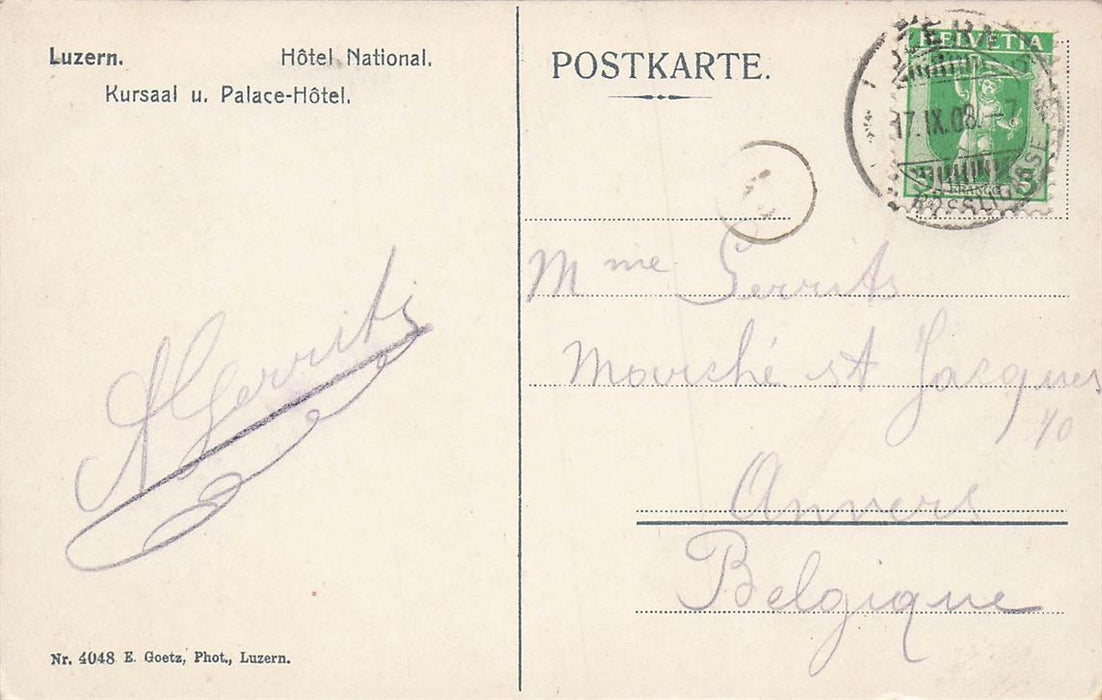 Luzern. Hôtel National.
Kursaal u. Palace-Hôtel.
POSTKARTE.
HELVETIA
17.IX.08.-7
FRANCO 5
Mme Gerrits
Marché st Jacques
Anvers
Belgique
A Gerrits
Nr. 4048 E. Goetz, Phot., Luzern.